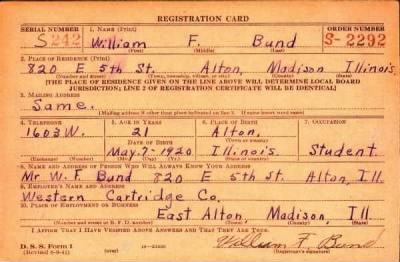 REGISTRATION CARD
SERIAL NUMBER 1. NAME (Print) ORDER NUMBER
S 242 William F. Bund S-2292
(First) (Middle) (Last)
2. PLACE OF RESIDENCE (Print)
820 E 5th St. Alton, Madison Illinois
(Number and street) (Town, township, village, or city) (County) (State)
[THE PLACE OF RESIDENCE GIVEN ON THE LINE ABOVE WILL DETERMINE LOCAL BOARD
JURISDICTION; LINE 2 OF REGISTRATION CERTIFICATE WILL BE IDENTICAL]
3. MAILING ADDRESS
Same.
[Mailing address if other than place indicated on line 2. If same insert word same]
4. TELEPHONE 5. AGE IN YEARS 6. PLACE OF BIRTH 7. OCCUPATION
1603W. 21 Alton,
DATE OF BIRTH (Town or county)
May. 7. 1920 Illinois. Student.
(Exchange) (Number) (Mo.) (Day) (Yr.) (State or country)
8. NAME AND ADDRESS OF PERSON WHO WILL ALWAYS KNOW YOUR ADDRESS
Mr W. F. Bund 820 E 5th St. Alton, Ill
9. EMPLOYER'S NAME AND ADDRESS
Western Cartridge Co.
10. PLACE OF EMPLOYMENT OR BUSINESS
East Alton, Madison, Ill
(Number and street or R. F. D. number) (Town) (County) (State)
I AFFIRM THAT I HAVE VERIFIED ABOVE ANSWERS AND THAT THEY ARE TRUE.
D. S. S. Form 1 William F. Bund
(Revised 6-9-41) (Registrant's signature)